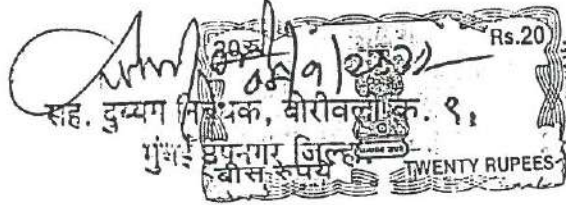 20रु Rs.20
सह. दुय्यम निबंधक, बोरीवली क्र. १,
मुंबई उपनगर जिल्हा.
बीस रुपये TWENTY RUPEES